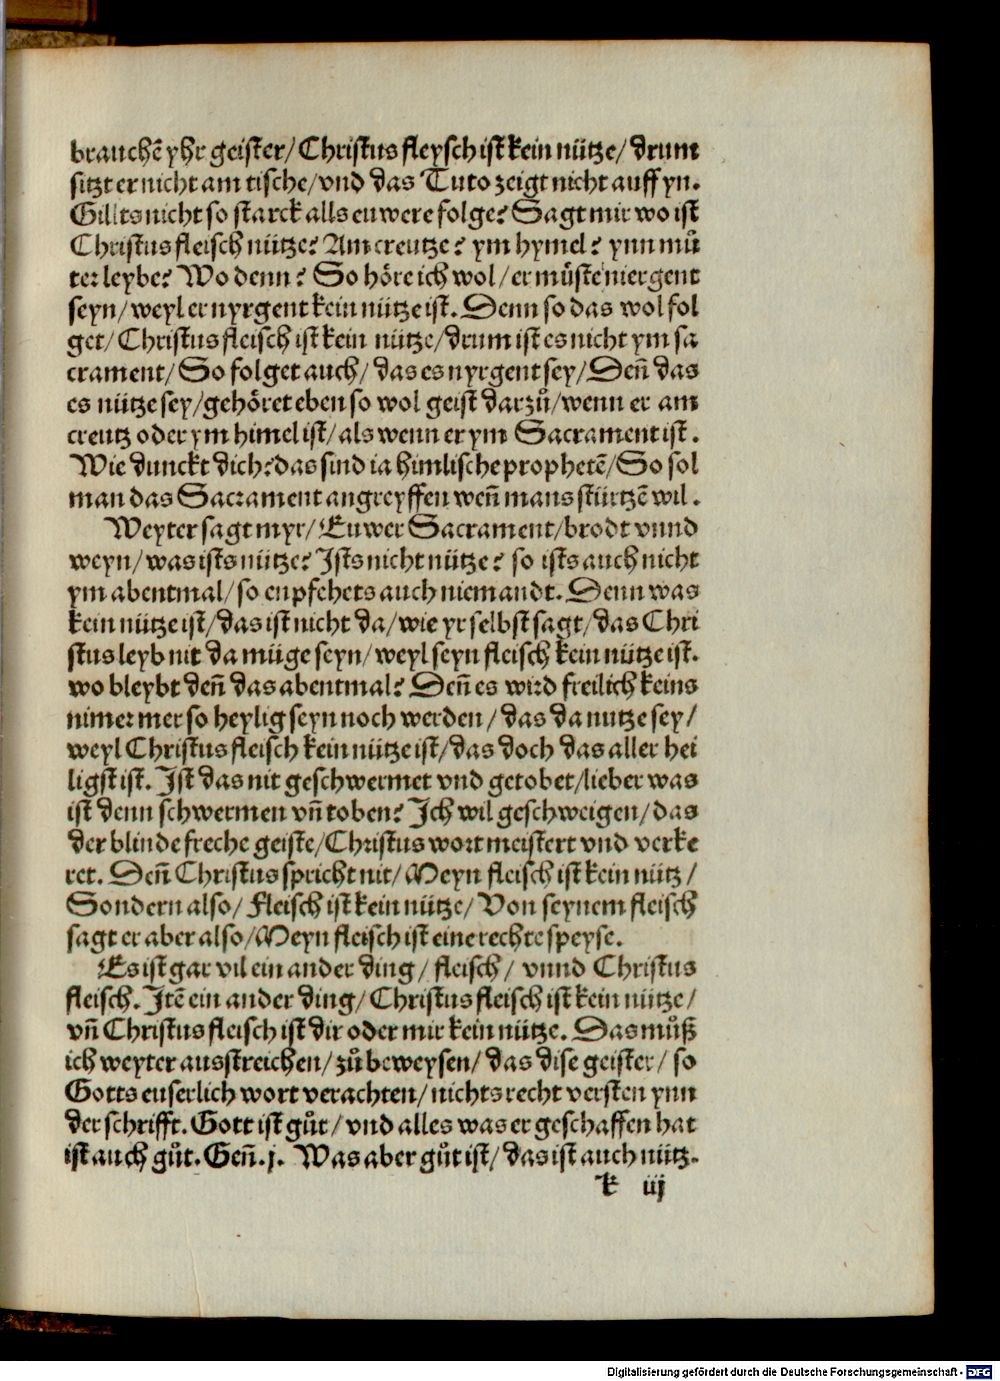 brauchē yhr geister/ Christus fleysch ist kein nütze/ drum
sitzt er nicht am tische/ vnd das Tuto zeigt nicht auff yn.
Gillts nicht so starck alls euwere folge? Sagt mir wo ist
Christus fleisch nütze? Am creutze? ym hymel? ynn mů
ter leybe? Wo denn? So höre ich wol/ er müste niergent
seyn/ weyl er nyrgent kein nütze ist. Denn so das wol fol
get/ Christus fleisch ist kein nütze/ drum ist es nicht ym sa
crament/ So folget auch/ das es nyrgent sey/ Deñ das
es nütze sey/ gehöret eben so wol geist darzů/ wenn er am
creutz oder ym himel ist/ als wenn er ym Sacrament ist.
Wie dunckt dich? das sind ia himlische prophetē/ So sol
man das Sacrament angreyffen weñ mans stürtzē wil.
Weyter sagt myr/ Euwer Sacrament/ brodt vnnd
weyn/ was ists nütze? Ists nicht nütze? so ists auch nicht
ym abentmal/ so enpfehets auch niemandt. Denn was
kein nütze ist/ das ist nicht da/ wie yr selbst sagt/ das Chri
stus leyb nit da müge seyn/ weyl seyn fleisch kein nütze ist.
wo bleybt deñ das abentmal? Deñ es wird freilich keins
nimer mer so heylig seyn noch werden/ das da nutze sey/
weyl Christus fleisch kein nütze ist/ das doch das aller hei
ligst ist. Ist das nit geschwermet vnd getobet/ lieber was
ist denn schwermen vñ toben? Ich wil geschweigen/ das
der blinde freche geiste/ Christus wort meistert vnd verke
ret. Deñ Christus spricht nit/ Meyn fleisch ist kein nütz/
Sondern also/ Fleisch ist kein nütze/ Von seynem fleisch
sagt er aber also/ Meyn fleisch ist eine rechte speyse.
Es ist gar vil ein ander ding/ fleisch/ vnnd Christus
fleisch. Itē ein ander ding/ Christus fleisch ist kein nütze/
vñ Christus fleisch ist dir oder mir kein nütze. Das můß
ich weyter ausstreichen/ zů beweysen/ das dise geister/ so
Gotts euserlich wort verachten/ nichts recht versten ynn
der schrifft. Gott ist gůt/ vnd alles was er geschaffen hat
ist auch gůt. Geñ. j. Was aber gůt ist/ das ist auch nütz.
k iij
Digitalisierung gefördert durch die Deutsche Forschungsgemeinschaft - DFG